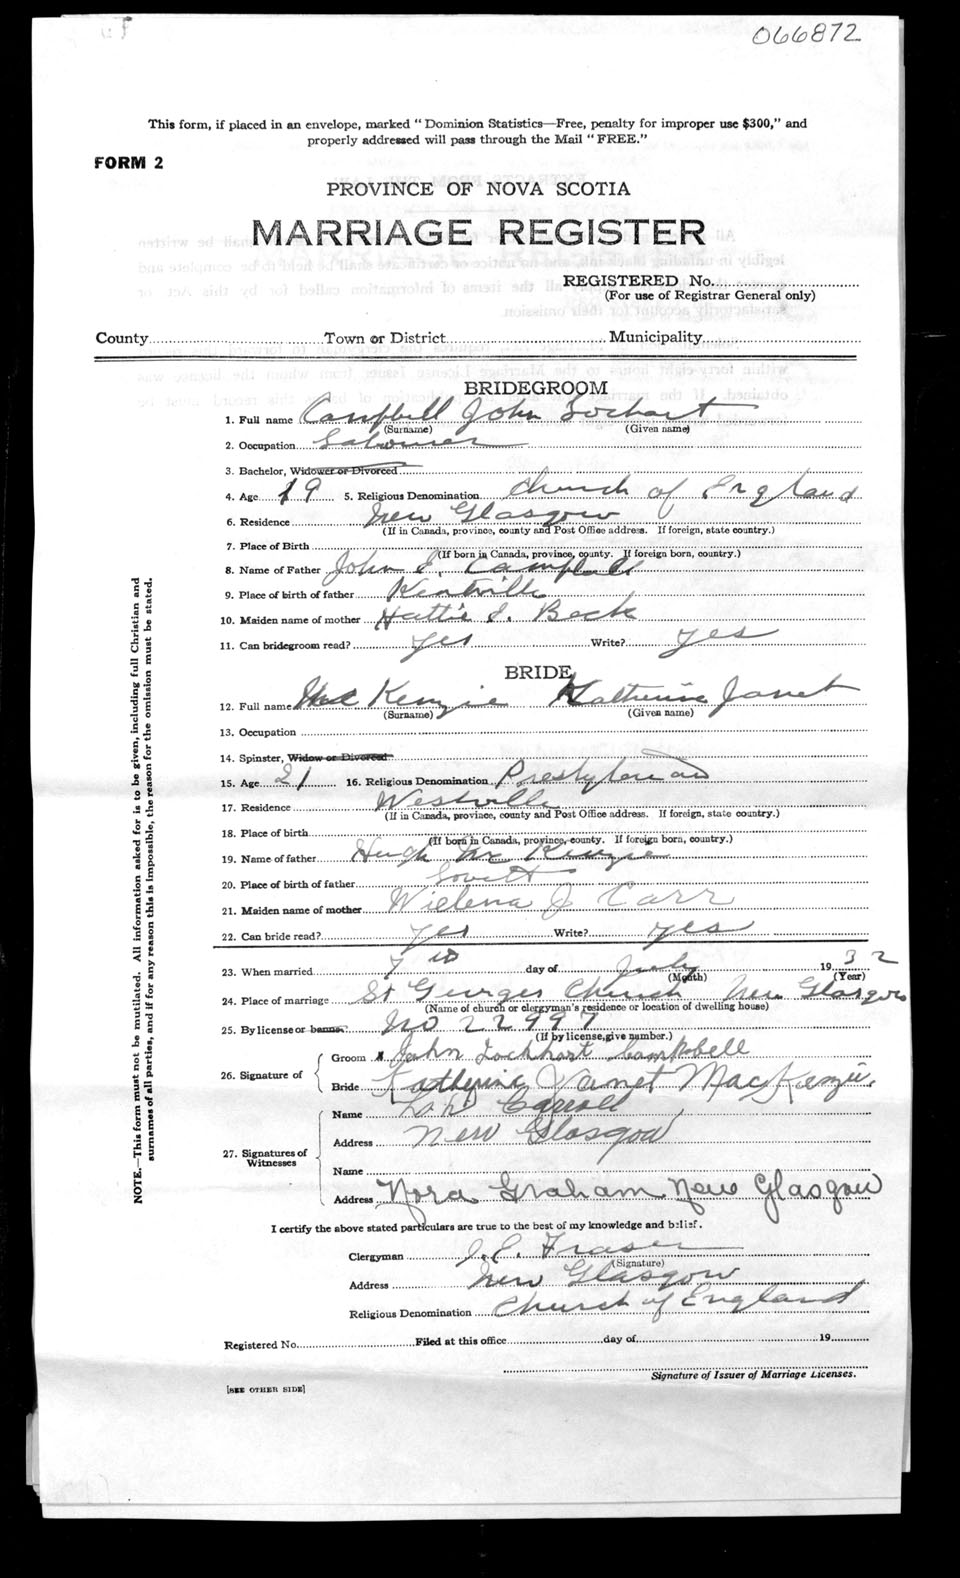 066872
This form, if placed in an envelope, marked "Dominion Statistics—Free, penalty for improper use $300," and
properly addressed will pass through the Mail "FREE."
FORM 2
PROVINCE OF NOVA SCOTIA
MARRIAGE REGISTER
REGISTERED No.
(For use of Registrar General only)
County Town or District Municipality
BRIDEGROOM
1. Full name Campbell John Lochart
(Surname) (Given name)
2. Occupation Labourer
3. Bachelor, Widower or Divorced
4. Age 19 5. Religious Denomination Church of England
6. Residence New Glasgow
(If in Canada, province, county and Post Office address. If foreign, state country.)
7. Place of Birth
(If born in Canada, province, county. If foreign born, country.)
8. Name of Father John E. Campbell
9. Place of birth of father Kentville
10. Maiden name of mother Hattie I. Beck
11. Can bridegroom read? Yes Write? Yes
BRIDE
12. Full name MacKenzie Katherine Janet
(Surname) (Given name)
13. Occupation
14. Spinster, Widow or Divorced
15. Age 21 16. Religious Denomination Presbyterian
17. Residence Westville
(If in Canada, province, county and Post Office address. If foreign, state country.)
18. Place of birth
(If born in Canada, province, county. If foreign born, country.)
19. Name of father Hugh McKenzie
20. Place of birth of father
21. Maiden name of mother Wielena J Carr
22. Can bride read? yes Write? yes
23. When married 7th day of July 1932
(Month) (Year)
24. Place of marriage St Georges Church New Glasgow
(Name of church or clergyman's residence or location of dwelling house)
25. By license or banns No 22997
(If by license, give number.)
26. Signature of
Groom x John Lockhart Campbell
Bride Katherine Janet MacKenzie.
27. Signatures of Witnesses
Name Carroll
Address New Glasgow
Name
Address Nora Graham New Glasgow
I certify the above stated particulars are true to the best of my knowledge and belief.
Clergyman J. E. Fraser
(Signature)
Address New Glasgow
Religious Denomination Church of England
Registered No. Filed at this office day of 19
Signature of Issuer of Marriage Licenses.
[SEE OTHER SIDE]
NOTE.—This form must not be mutilated. All information asked for is to be given, including full Christian and
surnames of all parties, and if for any reason this is impossible, the reason for the omission must be stated.